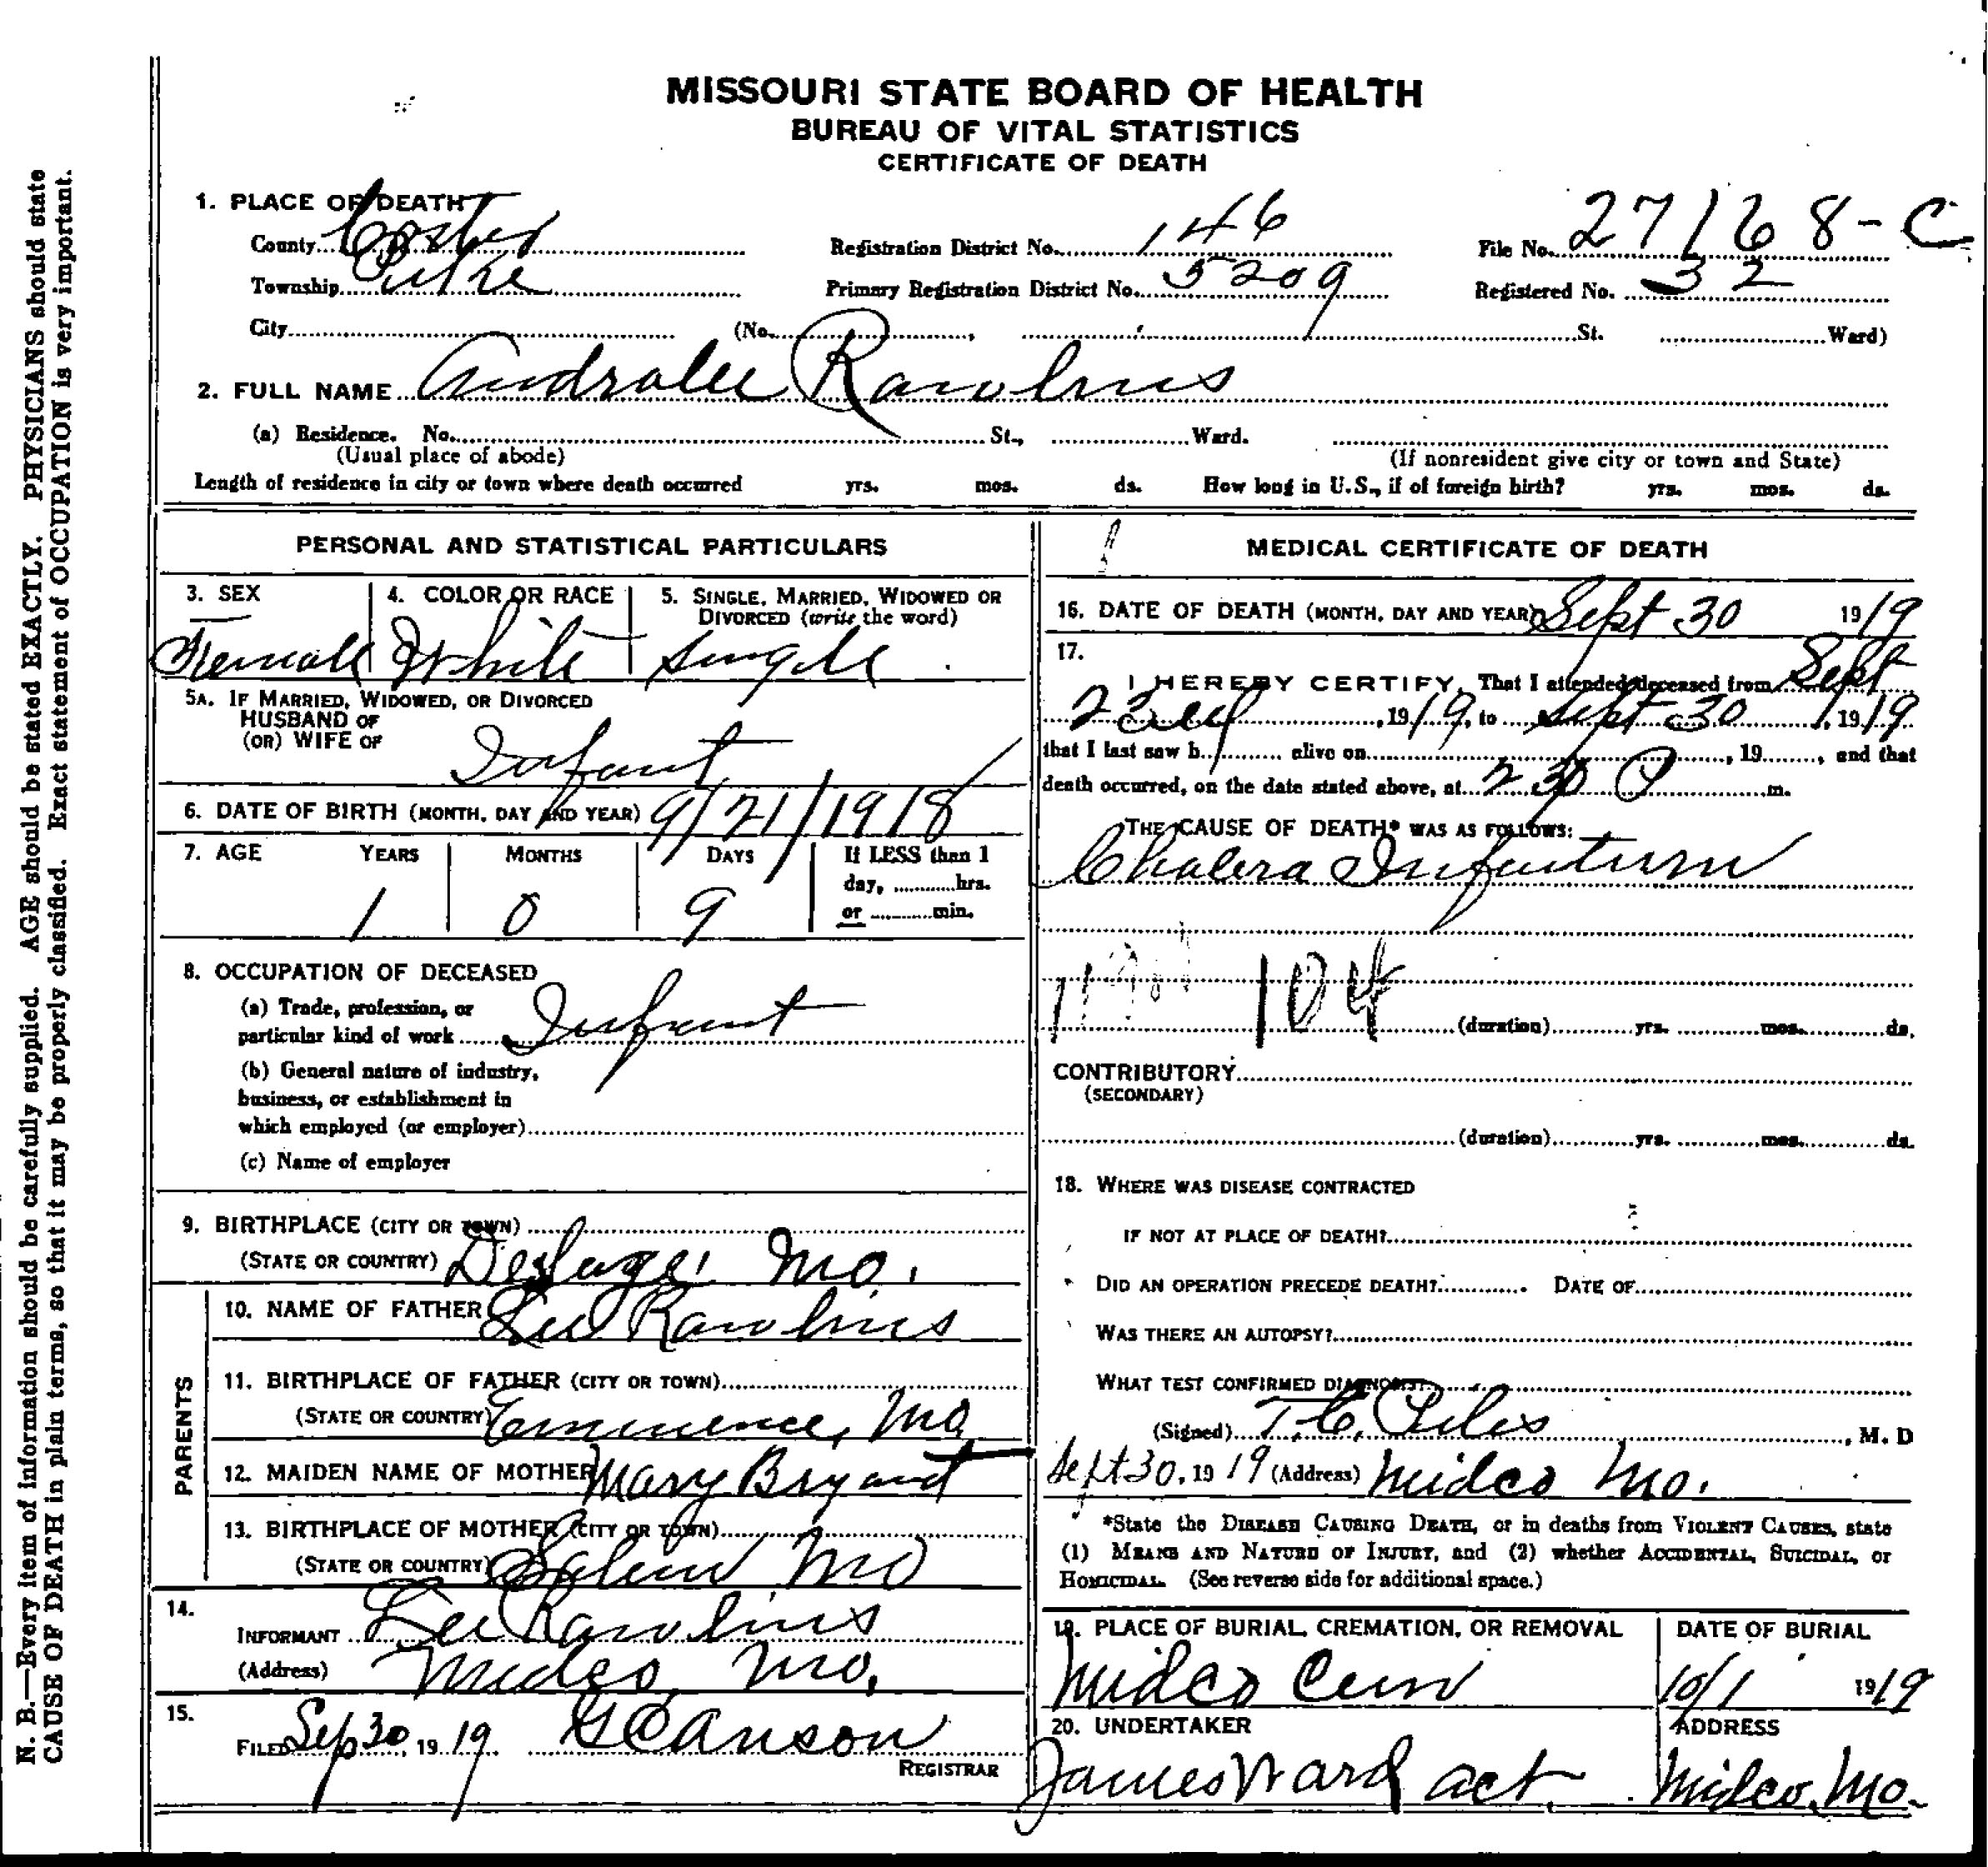 MISSOURI STATE BOARD OF HEALTH
BUREAU OF VITAL STATISTICS
CERTIFICATE OF DEATH
1. PLACE OF DEATH
County
Registration District No. 146
File No. 27168-C
Township
Primary Registration District No. 5209
Registered No. 32
City (No. , St. Ward)
2. FULL NAME Rawlins
(a) Residence. No. St., Ward.
(Usual place of abode) (If nonresident give city or town and State)
Length of residence in city or town where death occurred yrs. mos. ds. How long in U.S., if of foreign birth? yrs. mos. ds.
PERSONAL AND STATISTICAL PARTICULARS
3. SEX
Female
4. COLOR OR RACE
White
5. SINGLE, MARRIED, WIDOWED OR
DIVORCED (write the word)
Single
5A. IF MARRIED, WIDOWED, OR DIVORCED
HUSBAND OF
(OR) WIFE OF
Infant
6. DATE OF BIRTH (MONTH, DAY AND YEAR) 9/21/1918
7. AGE YEARS MONTHS DAYS If LESS than 1
day, hrs.
or min.
1 0 9
8. OCCUPATION OF DECEASED
(a) Trade, profession, or
particular kind of work Infant
(b) General nature of industry,
business, or establishment in
which employed (or employer)
(c) Name of employer
9. BIRTHPLACE (CITY OR TOWN)
(STATE OR COUNTRY) Mo.
PARENTS
10. NAME OF FATHER Lee Rawlins
11. BIRTHPLACE OF FATHER (CITY OR TOWN)
(STATE OR COUNTRY) Eminence, Mo
12. MAIDEN NAME OF MOTHER Mary Bryant
13. BIRTHPLACE OF MOTHER (CITY OR TOWN)
(STATE OR COUNTRY) Salem Mo
14.
INFORMANT Lee Rawlins
(Address) Midco, Mo.
15.
FILED Sep 30, 1919
REGISTRAR
MEDICAL CERTIFICATE OF DEATH
16. DATE OF DEATH (MONTH, DAY AND YEAR) Sept 30 1919
17.
I HEREBY CERTIFY, That I attended deceased from Sept
, 1919, to Sept 30, 1919
that I last saw h alive on , 19 , and that
death occurred, on the date stated above, at 2 30 P m.
THE CAUSE OF DEATH* WAS AS FOLLOWS:
Chalera Infantum
104
(duration) yrs. mos. ds.
CONTRIBUTORY
(SECONDARY)
(duration) yrs. mos. ds.
18. WHERE WAS DISEASE CONTRACTED
IF NOT AT PLACE OF DEATH?
DID AN OPERATION PRECEDE DEATH? DATE OF
WAS THERE AN AUTOPSY?
WHAT TEST CONFIRMED DIAGNOSIS?
(Signed) , M. D
Sept 30, 1919 (Address) Midco Mo.
*State the DISEASE CAUSING DEATH, or in deaths from VIOLENT CAUSES, state
(1) MEANS AND NATURE OF INJURY, and (2) whether ACCIDENTAL, SUICIDAL, or
HOMICIDAL. (See reverse side for additional space.)
19. PLACE OF BURIAL, CREMATION, OR REMOVAL
Midco Cem
DATE OF BURIAL
10/1 1919
20. UNDERTAKER
James Ward act.
ADDRESS
Midco, Mo.
N. B.—Every item of information should be carefully supplied. AGE should be stated EXACTLY. PHYSICIANS should state
CAUSE OF DEATH in plain terms, so that it may be properly classified. Exact statement of OCCUPATION is very important.